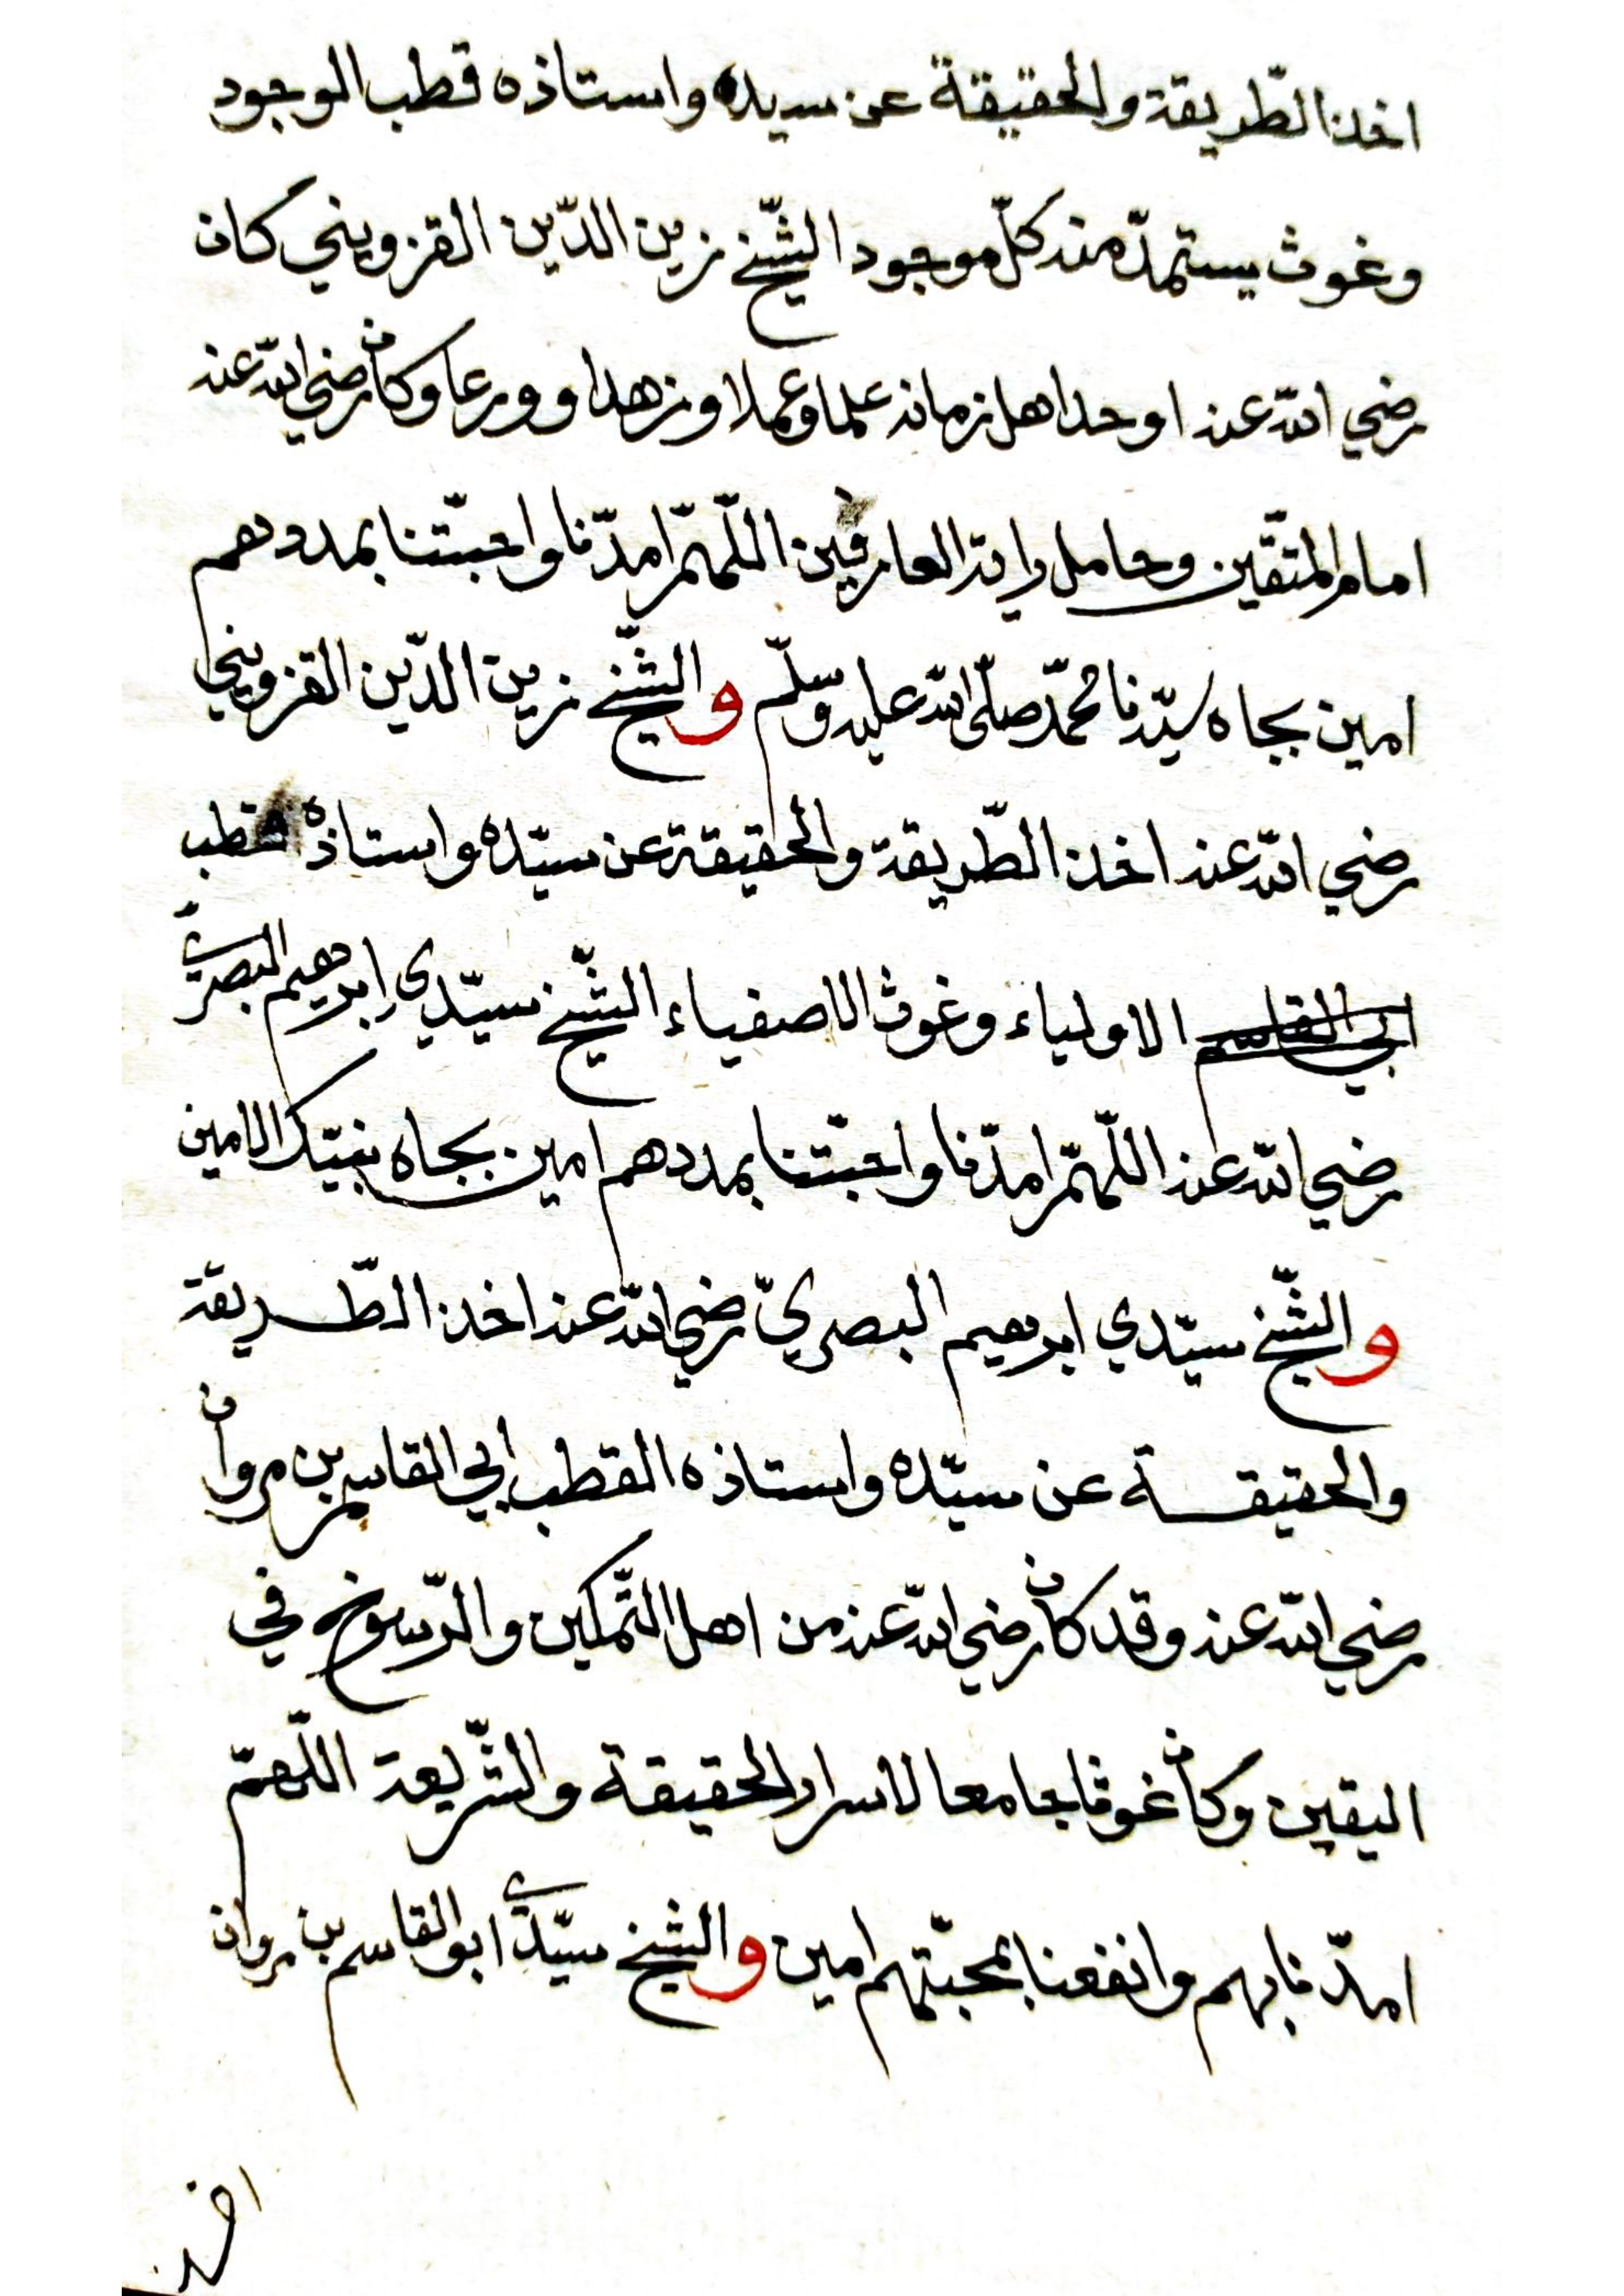 اخذ الطّريقة والحقيقة عن سيده واستاذه قطب الوجود
وغوث يستمدّ منه كلّ موجود الشّيخ زين الدّين القزويني كان
رضي الله عنه اوحد اهل زمانه علما وعملا وزهدا وورعا وكان رضي الله عنه
امام المتقّين وحامل راية العارفين اللّهمّ امدّنا واحبّتنا بمددهم
امين بجاه سيّدنا محمّد صلّى الله عليه وسلّم والشّيخ زين الدّين القزويني
رضي الله عنه اخذ الطّريقة والحقيقة عن سيّده واستاذه قطب
ابي القاسم الاولياء وغوث الاصفياء الشّيخ سيّدي ابرهيم البصريّ
رضي الله عنه اللّهمّ امدّنا واحبّتنا بمددهم امين بجاه نبيّك الامين
والشّيخ سيّدي ابرهيم البصريّ رضي الله عنه اخذ الطّريقة
والحقيقة عن سيّده واستاذه القطب ابي القاسم بن مروان
رضي الله عنه وقد كان رضي الله عنه من اهل التّمكين والرّسوخ في
اليقين وكان غوثا جامعا لاسرار الحقيقة والشّريعة اللّهمّ
امدّنا بهم وانفعنا بمحبّتهم امين والشيخ سيّدي ابو القاسم بن مروان
اخذ